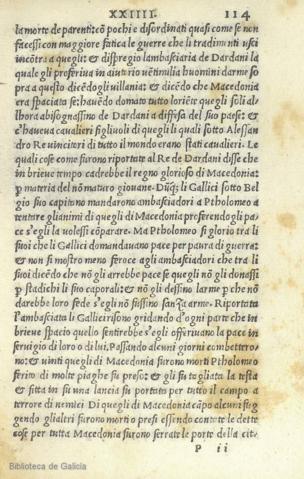 XXIIII. 114
la morte de parenti: cõ pochi e disordinati quasi come se non
facessi con maggiore fatica le guerre che li tradimenti usci
incõtra a quegli: & dispregio lambasciaria de Dardani la
quale gli proferiua in aiutorio uẽtimilia huomini darme so
pra a questo dicẽdogli uillania: & dicẽdo che Macedonia
era spaciata se: hauẽdo domato tutto loriẽte quegli soli al
lhora abisognassino de Dardani a diffesa del suo paese: &
c'haueua caualieri figliuoli di quegli li quali sotto Alessan
dro Re uincitori di tutto il mondo erano stati caualieri. Le
quali cose come furono riportate al Re de Dardani disse che
in brieue tempo cadrebbe il regno glorioso di Macedonia:
p materia del nõ maturo giouane. Dũq; li Gallici sotto Bel
gio suo capitano mandarono ambasciadori a Ptholomeo a
tentare gli animi di quegli di Macedonia preferendogli pa
ce s'egli la uolessi cõparare. Ma Ptholomeo si glorio tra li
suoi che li Gellici domandauano pace per paura di guerra:
& non si mostro meno feroce agli ambasciadori che tra li
suoi dicẽdo che nõ gli arrebbe pace se quegli nõ gli donassi
p stadichi li suo caporali: & nõ gli dessino larme p che nõ
darebbe loro fede s'egli nõ fussino sanza arme. Riportata
l'ambasciata li Gallici risono gridando d'ogni parte che in
brieue spacio quello sentirebbe s'egli offeriuano la pace in
seruigio di loro o di lui. Passando alcuni giorni combattero-
no: & uinti quegli di Macedonia furono morti Ptholomeo
ferito di molte piaghe fu preso: & gli fu tagliata la testa
& fitta in su una lancia fu portata per tutto il campo a
terrore di nemici Di quegli di Macedonia cãpo alcuni fug
gendo gli altri furono morti o presi essendo contate le dette
cose per tutta Macedonia furono serrate le porte della cit-
P ii
Biblioteca de Galicia